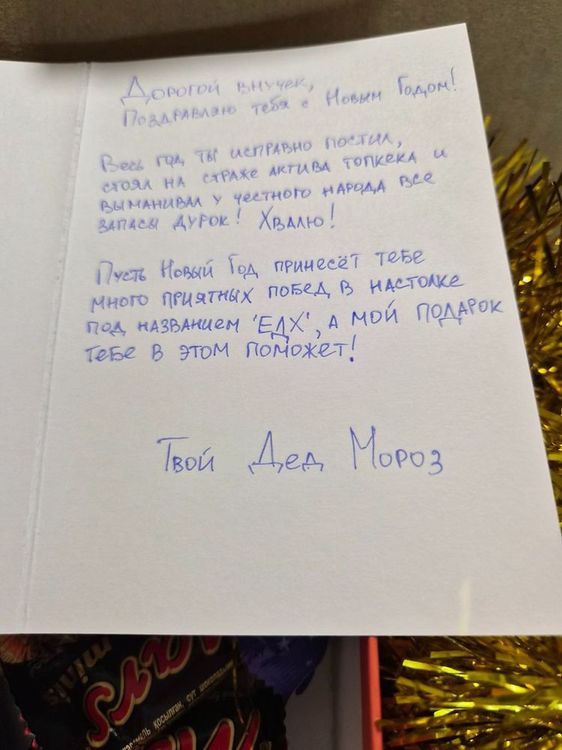 Дорогой внучек,
Поздравляю тебя с Новым Годом!
Весь год ты исправно постил,
стоял на страже актива топкека и
выманивал у честного народа все
запасы дурок! Хвалю!
Пусть Новый Год принесёт тебе
много приятных побед в настолке
под названием 'ЕДХ', а мой подарок
тебе в этом поможет!
Твой Дед Мороз
minis
Mars
қосылған, сүт